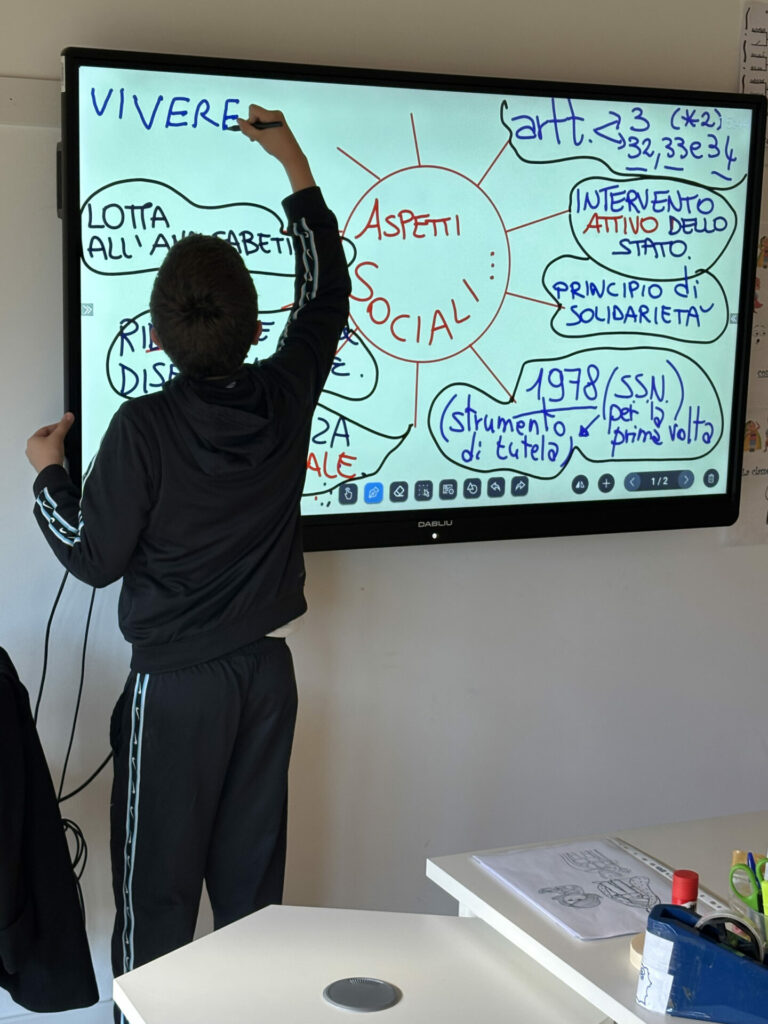 VIVERE
artt. 3 (*2)
32, 33 e 34
LOTTA
ALL'
ASPETTI
SOCIALI...
INTERVENTO
ATTIVO DELLO
STATO.
PRINCIPIO di
SOLIDARIETA'
1978 (SSN.)
per la
prima volta
(strumento
di tutela)
1/2
DABLIU